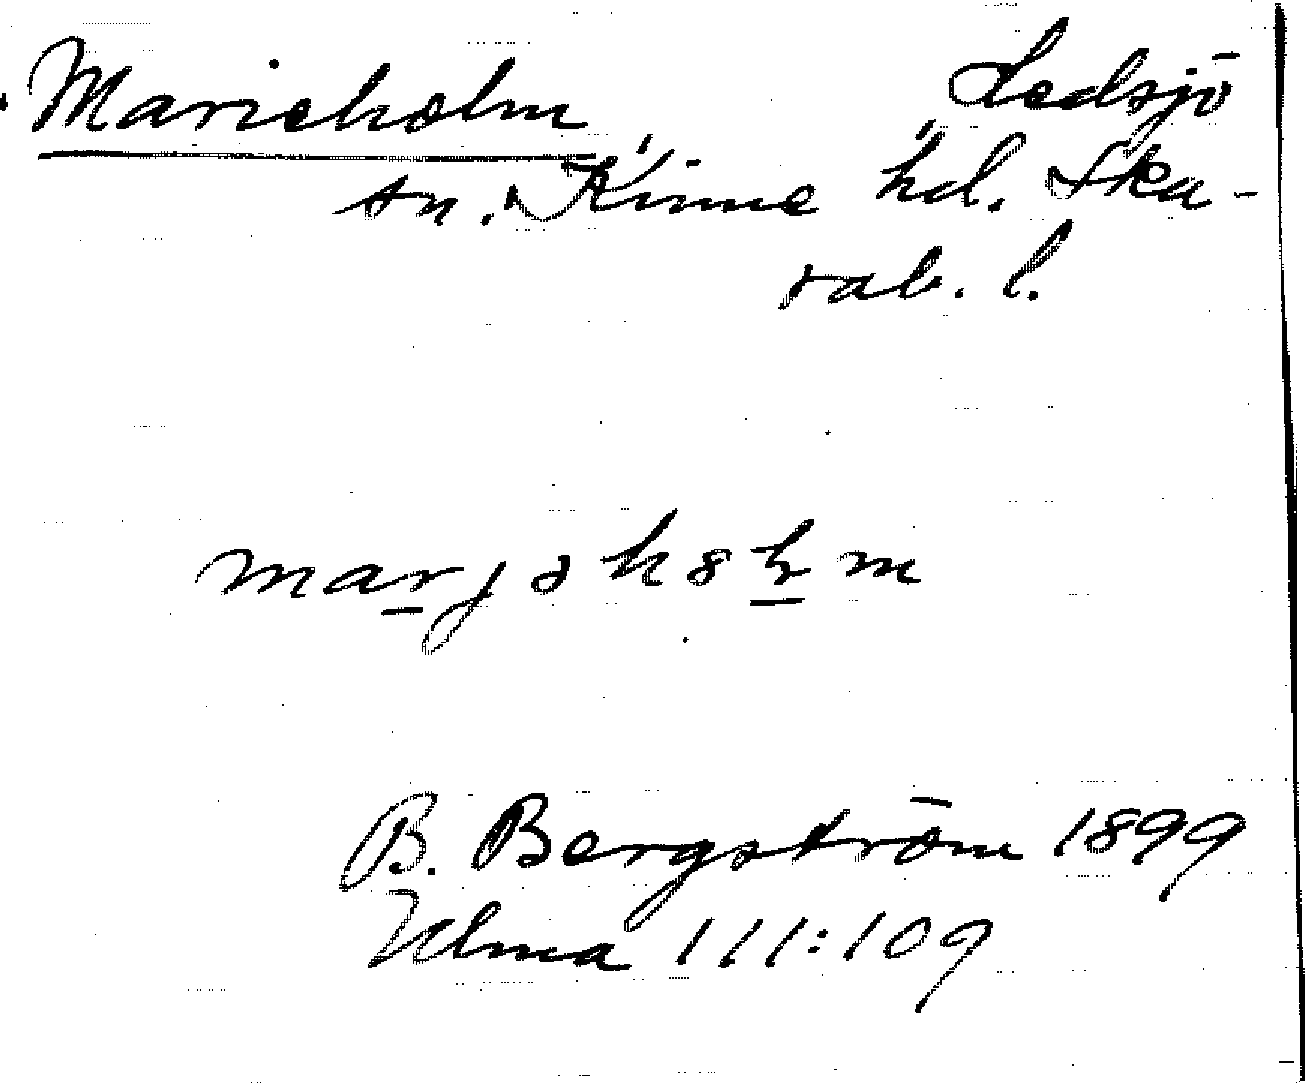 Marieholm Ledsjö
sn. Kinne hd. Ska-
rab. l.
marjəkɞhm
B. Bergström 1899
Ulma 111:109